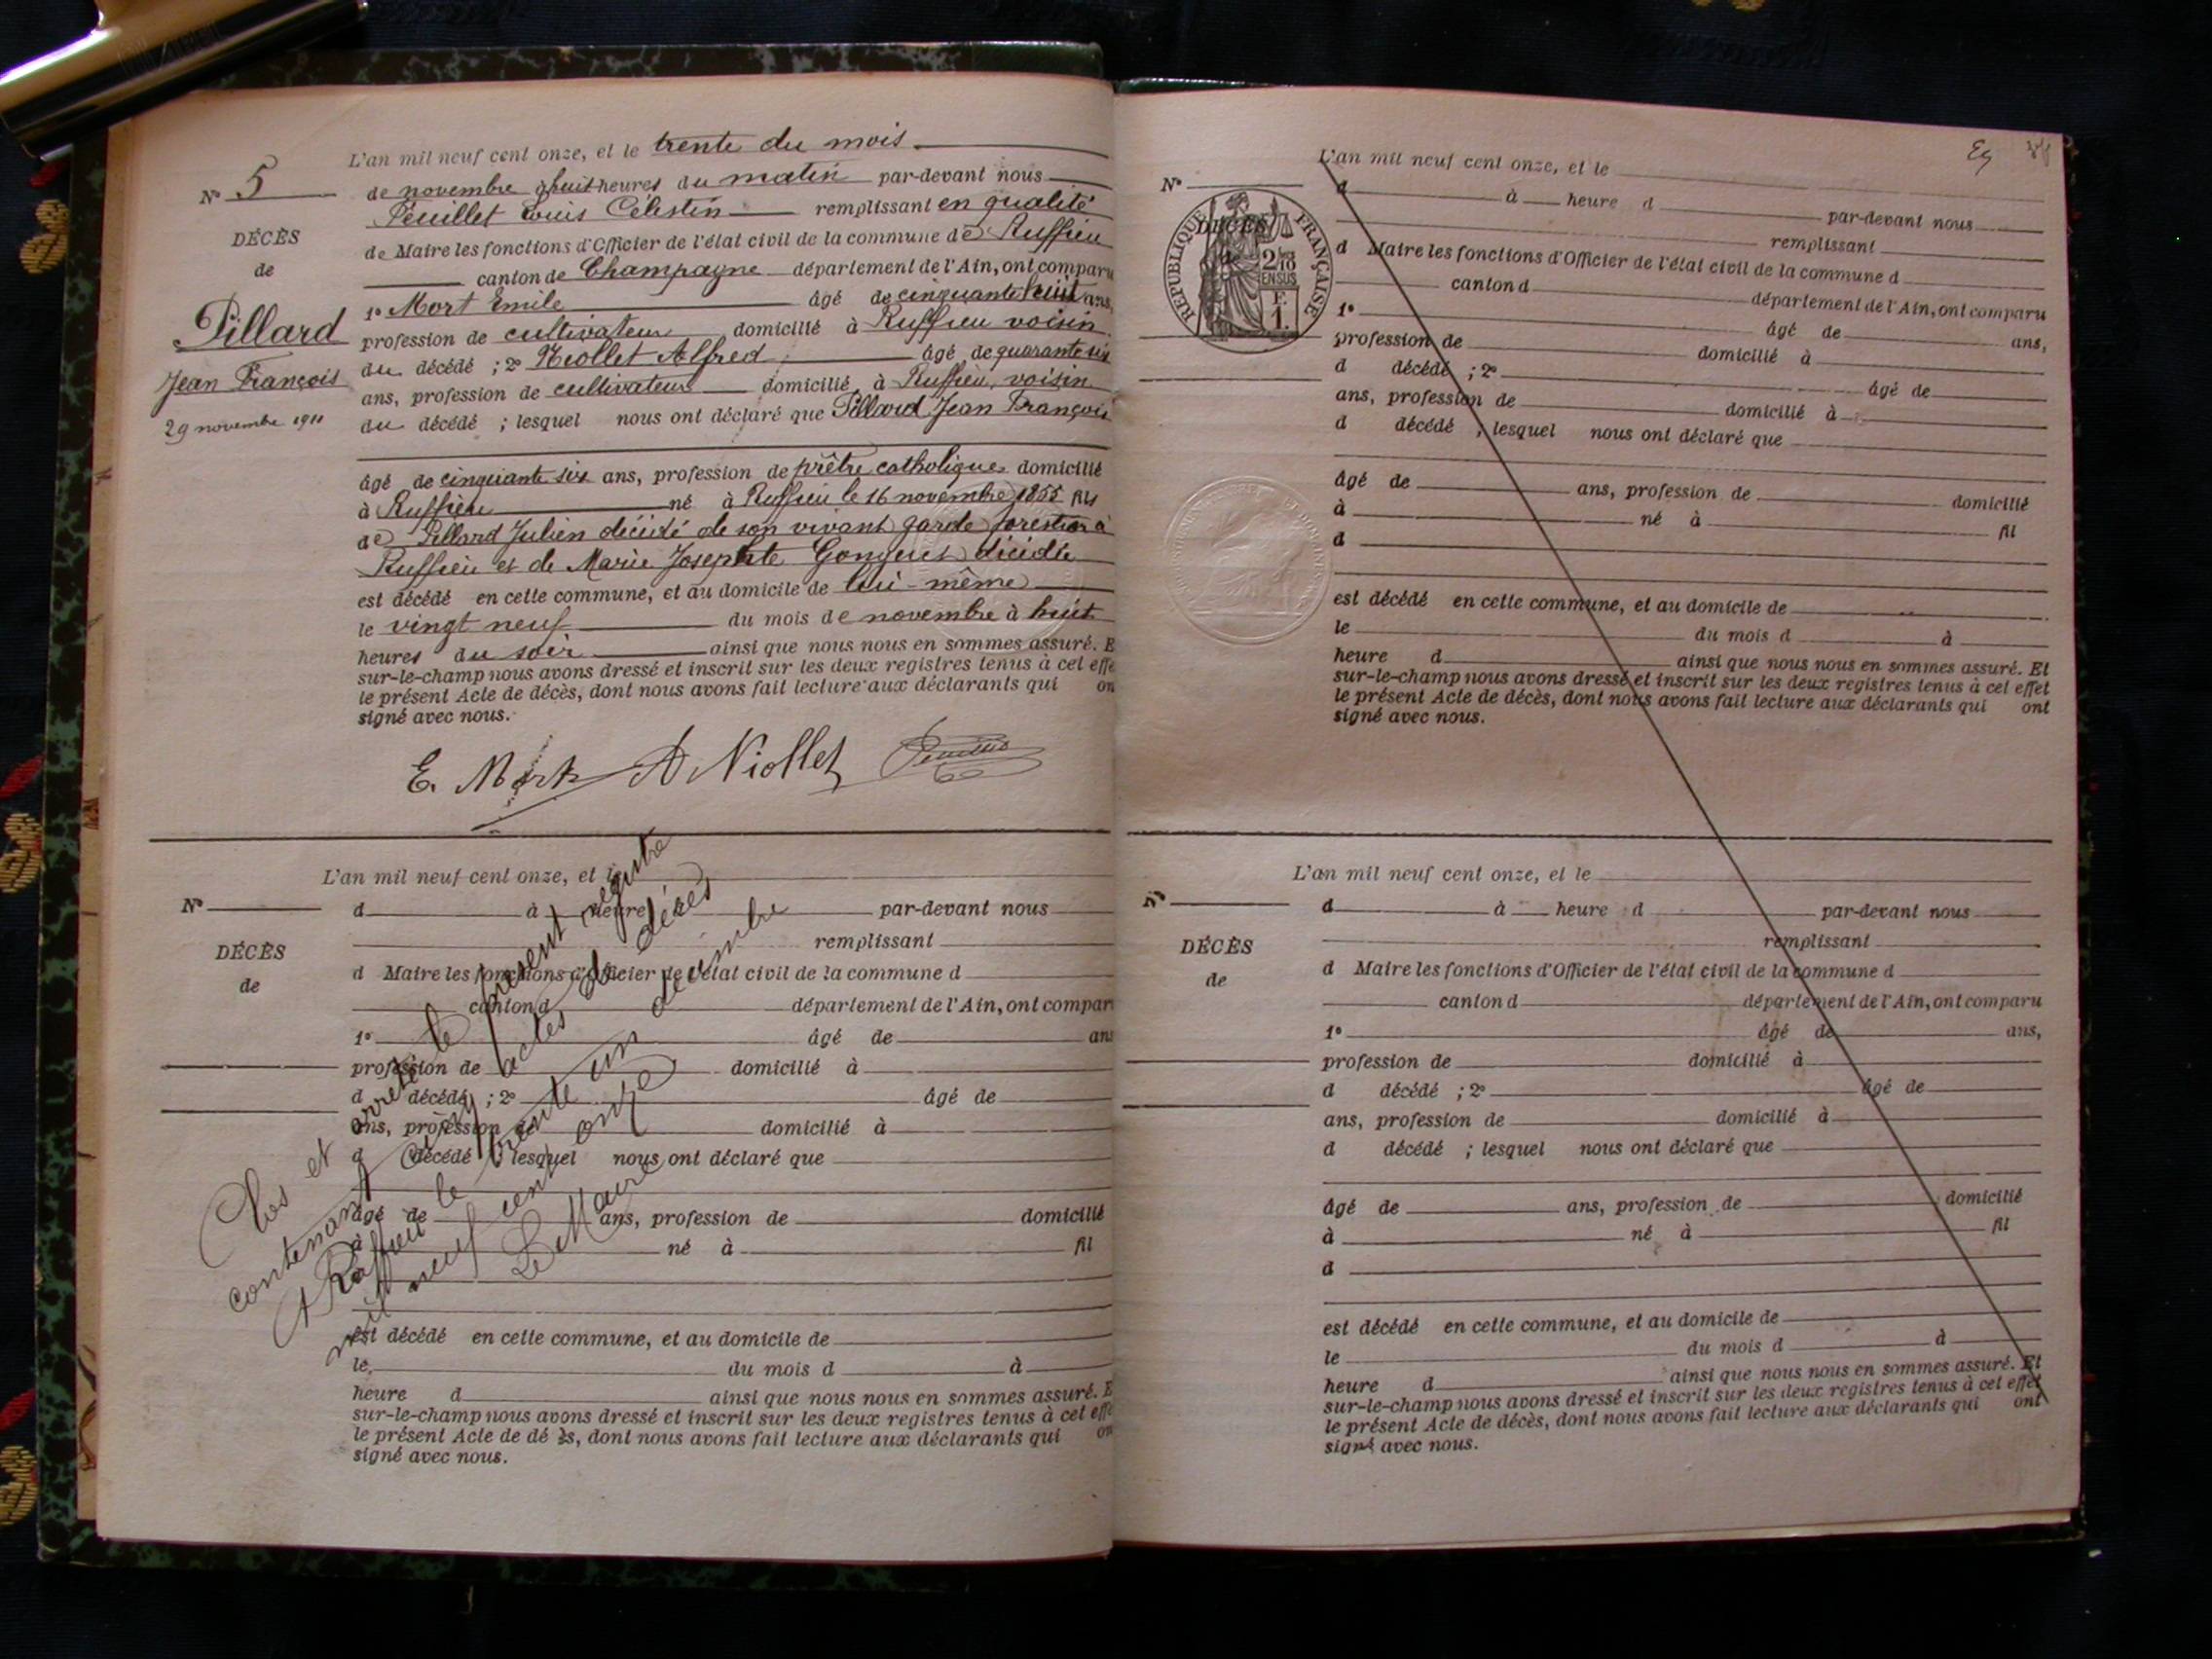 L'an mil neuf cent onze, et le trente du mois
N° 5
de novembre à huit heures du matin par-devant nous
Peuillet Louis Célestin remplissant en qualité
DÉCÈS
de Maire les fonctions d'Officier de l'état civil de la commune de Ruffieu
de
canton de Champagne département de l'Ain, ont comparu
1° Mort Emile âgé de cinquante huit ans,
Pillard
profession de cultivateur domicilié à Ruffieu voisin
du décédé ; 2° Niollet Alfred âgé de quarante six
Jean François
ans, profession de cultivateur domicilié à Ruffieu, voisin
29 novembre 1911
du décédé ; lesquel nous ont déclaré que Pillard Jean François
âgé de cinquante six ans, profession de prêtre catholique domicilié
à Ruffieu né à Ruffieu le 16 novembre 1855 fils
de Pillard Julien décédé de son vivant garde forestier à
Ruffieu et de Marie Josephte Gonguet décidée
est décédé en cette commune, et au domicile de lui-même
le vingt neuf du mois de novembre à huit
heures du soir ainsi que nous nous en sommes assuré. E
sur-le-champ nous avons dressé et inscrit sur les deux registres tenus à cet effe
le présent Acte de décès, dont nous avons fait lecture aux déclarants qui on
signé avec nous.
E. Mort A Niollet
L'an mil neuf cent onze, et le
N°
d à heure d par-devant nous
remplissant
DÉCÈS
d Maire les fonctions d'Officier de l'état civil de la commune d
de
canton d département de l'Ain, ont compar
1° âgé de ans
profession de domicilié à
d décédé ; 2° âgé de
ans, profession de domicilié à
d décédé ; lesquel nous ont déclaré que
âgé de ans, profession de domicilié
à né à fil
d
est décédé en cette commune, et au domicile de
le du mois d à
heure d ainsi que nous nous en sommes assuré. E
sur-le-champ nous avons dressé et inscrit sur les deux registres tenus à cet effe
le présent Acte de décès, dont nous avons fait lecture aux déclarants qui on
signé avec nous.
Clos et arrêté le présent registre
contenant cinq actes de décès
A Ruffieu le trente un décembre
mil neuf cent onze
Le Maire
L'an mil neuf cent onze, et le
N°
d à heure d par-devant nous
remplissant
DÉCÈS
RÉPUBLIQUE FRANÇAISE
2/10
EN SUS
F.
1.
d Maire les fonctions d'Officier de l'état civil de la commune d
canton d département de l'Ain, ont comparu
1° âgé de ans,
profession de domicilié à
d décédé ; 2° âgé de
ans, profession de domicilié à
d décédé ; lesquel nous ont déclaré que
âgé de ans, profession de domicilié
à né à fil
d
est décédé en cette commune, et au domicile de
le du mois d à
heure d ainsi que nous nous en sommes assuré. Et
sur-le-champ nous avons dressé et inscrit sur les deux registres tenus à cet effet
le présent Acte de décès, dont nous avons fait lecture aux déclarants qui ont
signé avec nous.
L'an mil neuf cent onze, et le
N°
d à heure d par-devant nous
remplissant
DÉCÈS
d Maire les fonctions d'Officier de l'état civil de la commune d
de
canton d département de l'Ain, ont comparu
1° âgé de ans,
profession de domicilié à
d décédé ; 2° âgé de
ans, profession de domicilié à
d décédé ; lesquel nous ont déclaré que
âgé de ans, profession de domicilié
à né à fil
d
est décédé en cette commune, et au domicile de
le du mois d à
heure d ainsi que nous nous en sommes assuré. Et
sur-le-champ nous avons dressé et inscrit sur les deux registres tenus à cet effet
le présent Acte de décès, dont nous avons fait lecture aux déclarants qui ont
signé avec nous.